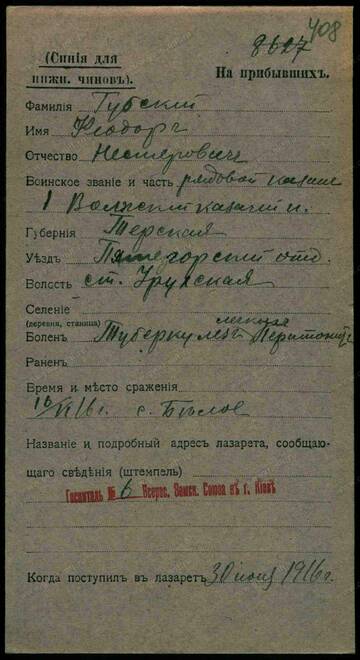 408
8627
(Синія для
нижн. чиновъ).
На прибывшихъ.
Фамилія Губский
Имя Феодоръ
Отчество Нестеровичъ
Воинское званіе и часть рядовой казакъ
1 Волжский казачий п.
Губернія Терская
Уѣздъ Пятигорский отд.
Волость ст. Урухская
Селеніе
(деревня, станица)
легкихъ
Боленъ Туберкулезъ Перитонитъ
Раненъ
Время и мѣсто сраженія
16/VI 16 г. с. Бѣлов
Названіе и подробный адресъ лазарета, сообщаю-
щаго свѣдѣнія (штемпель)
Госпиталь № 6 Всерос. Земск. Союза въ г. Кіевѣ
Когда поступилъ въ лазаретъ 30 июня 1916 г.